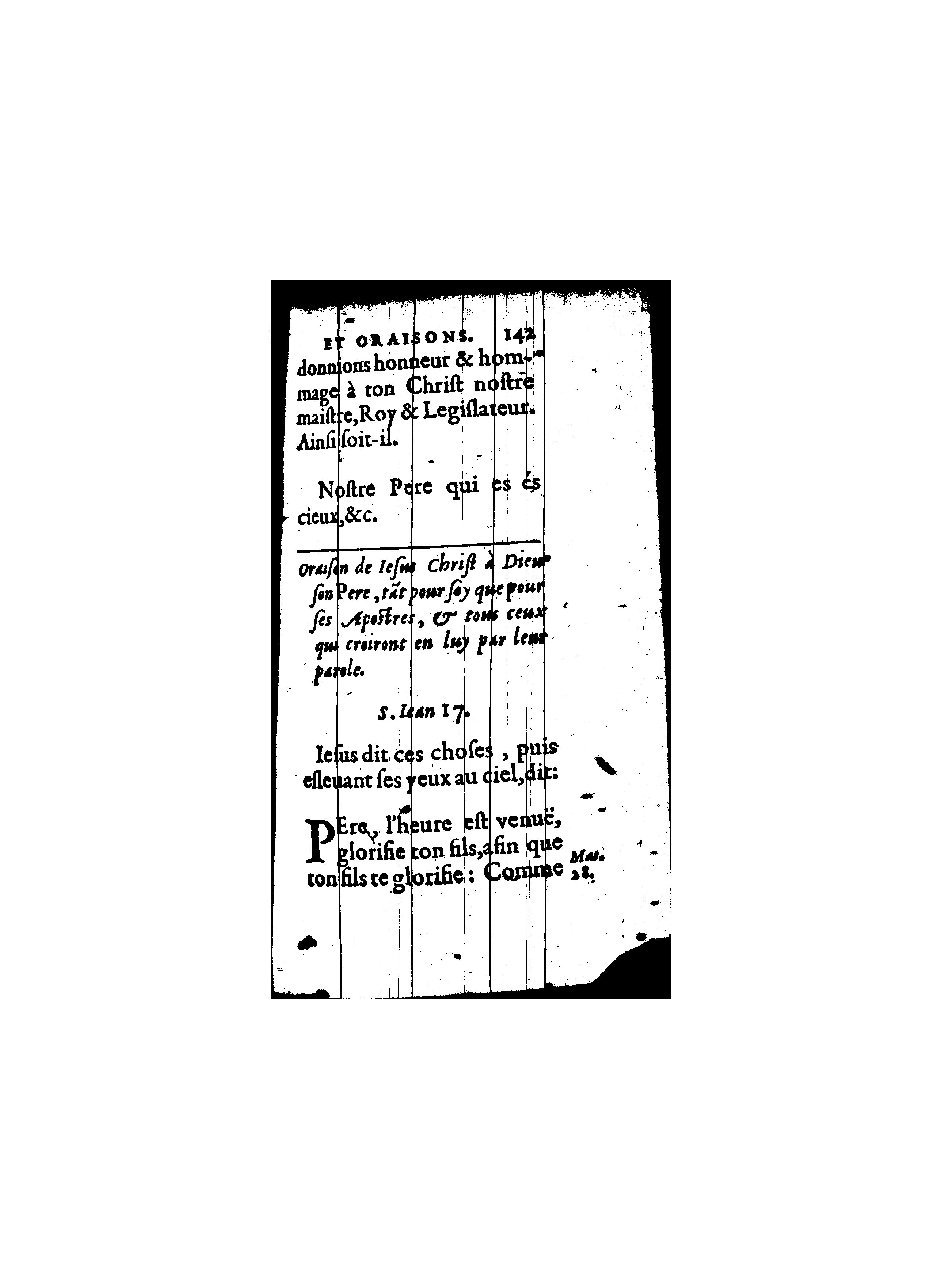 ET ORAISONS. 142
donnions honneur & hom-
mage à ton Chriſt noſtre
maiſtre, Roy & Legiſlateur.
Ainſi ſoit-il.
Noſtre Pere qui es és
cieux, &c.
Oraiſon de Ieſus Chriſt à Dieu
ſon Pere, tãt pour ſoy que pour
ſes Apoſtres, & tous ceux
qui croiront en luy par leur
parole.
S. Iean 17.
Ieſus dit ces choſes, puis
eſleuant ſes yeux au ciel, dit:
PEre, l'heure eſt venuë,
glorifie ton fils, afin que
ton fils te glorifie: Comme
Mat.
28.